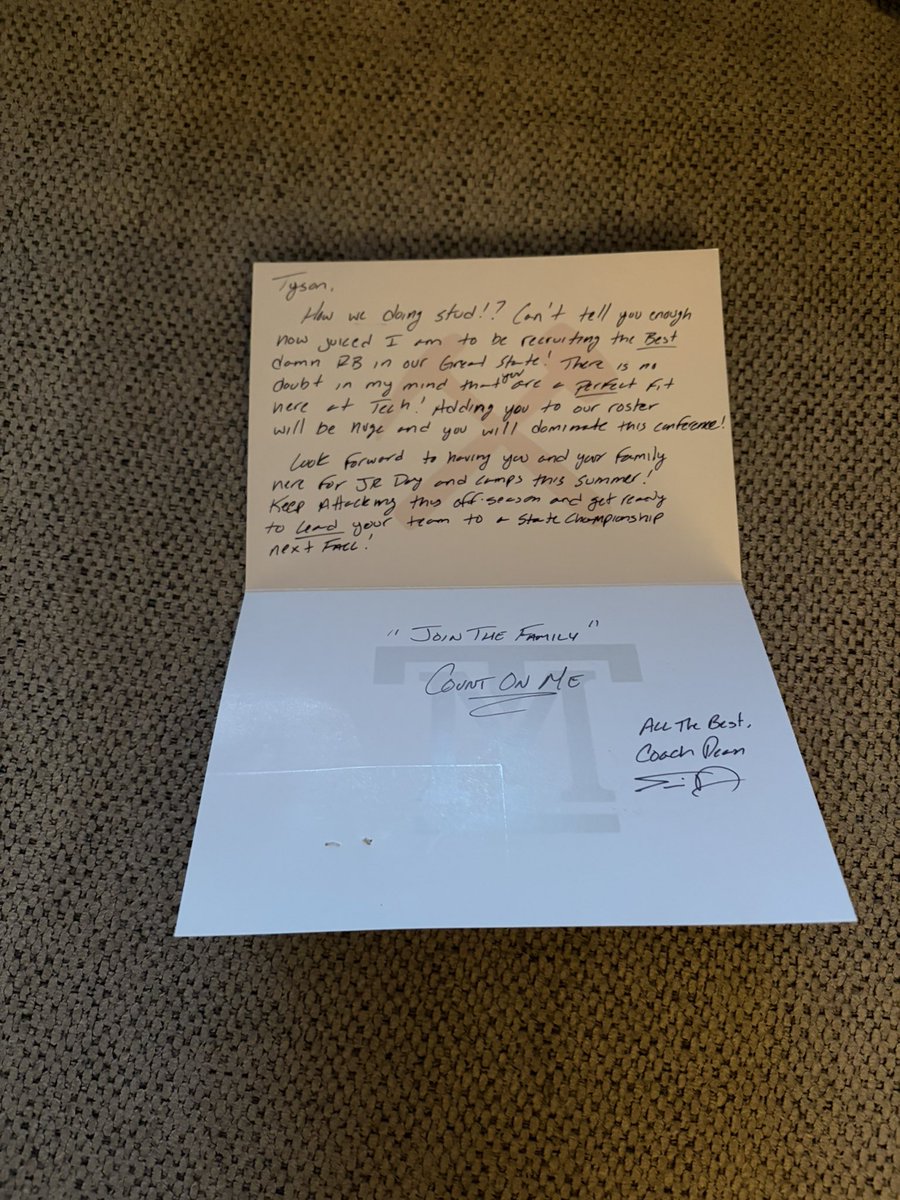 Tyson,
How we doing stud!? Can't tell you enough
how juiced I am to be recruiting the Best
damn RB in our Great State! There is no
doubt in my mind that you are a Perfect Fit
here at Tech! Adding you to our roster
will be huge and you will dominate this conference!
Look forward to having you and your family
here for JR Day and camps this summer!
Keep Attacking this off-season and get ready
to Lead your team to a State Championship
next Fall!
"Join The Family"
Count On Me
All The Best,
Coach Dean